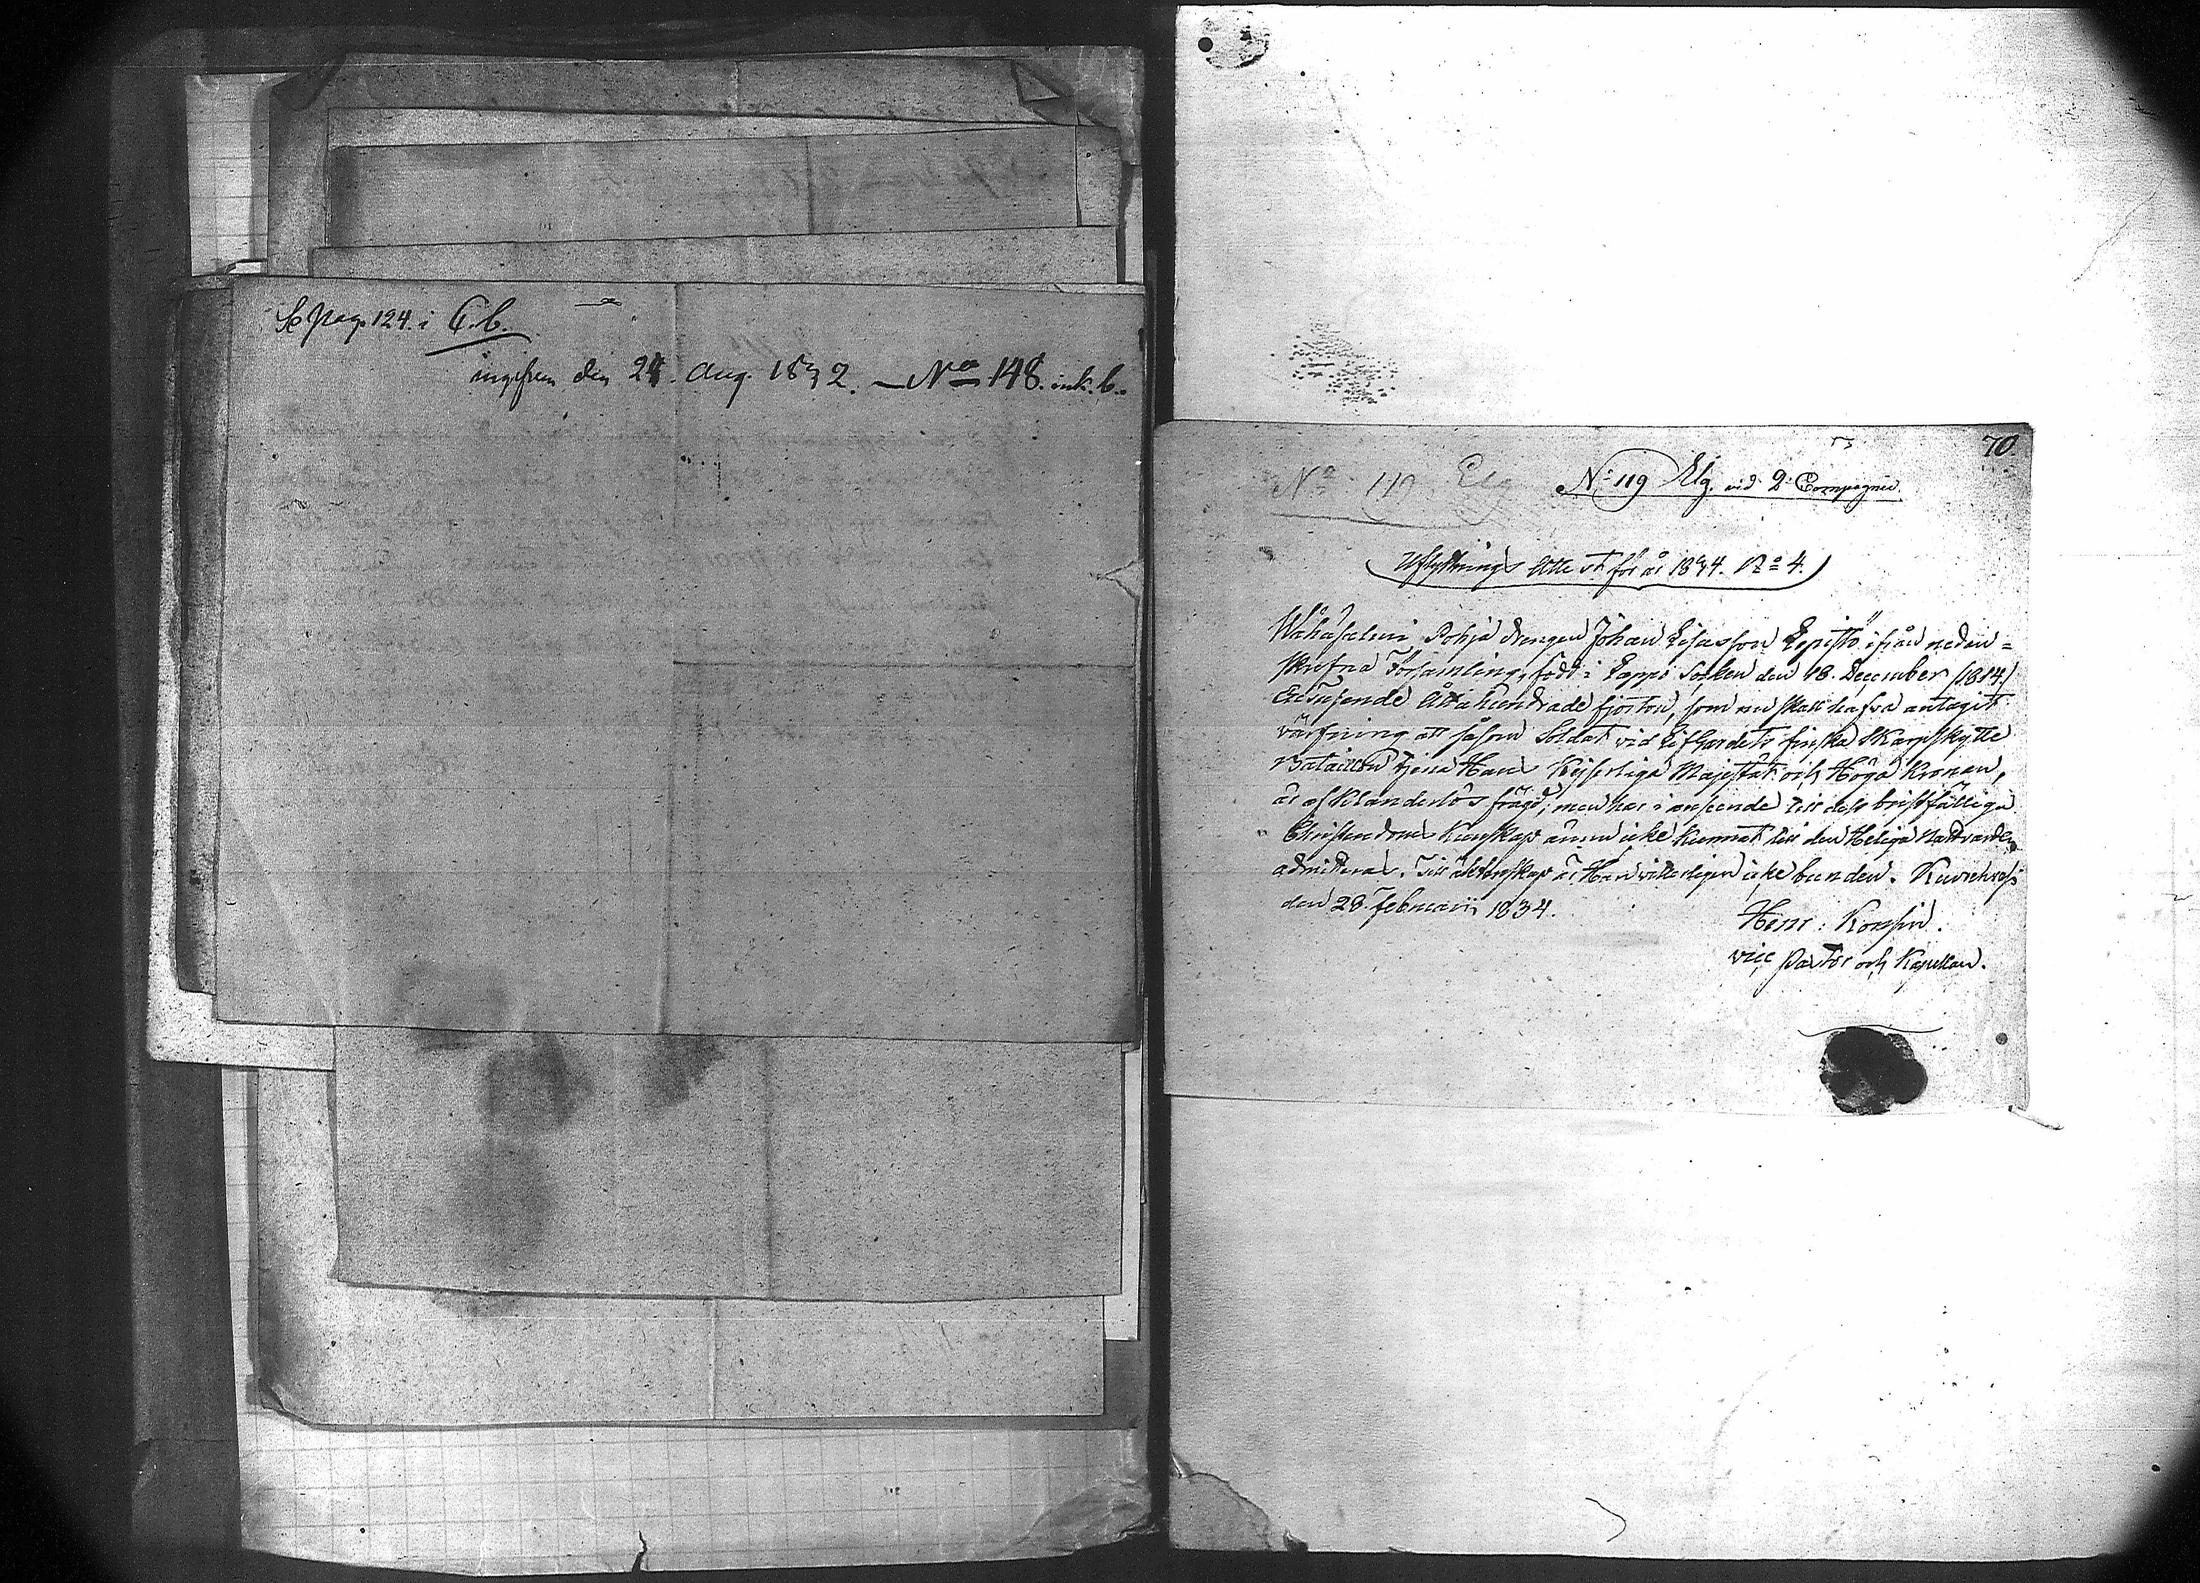 Se Pag. 124. i C.b.
ingifven den 24. Aug. 1832. — No 148. ink. b.
70
No 119 Elg
No 119 Elg. vid 2. Compagnie.
Utflyttnings Attest för år 1834. No 4.
Pohja drengen Johan Eliasson Lepistö ifrån nedan=
skrefna Församling, född i Lappo Socken den 18. December (1814)
Ettusende Åttahundrade fjorton, som nu skall hafva antagit
värfning att såsom Soldat vid Lif Gardets finska Skarpskytte
Bataillon tjena Hans Kejserliga Majestät och Höga Kronan,
är af klanderlös frägd; men har i anseende till dess bristfälliga
Christendoms Kunskap ännu icke kunnat till den Heliga Nattvarden
admitteras. Till äktenskap är Han vitterligen icke bunden.
den 28. Februarii 1834.
Henr: Konsin.
vice Pastor och Kapellan.